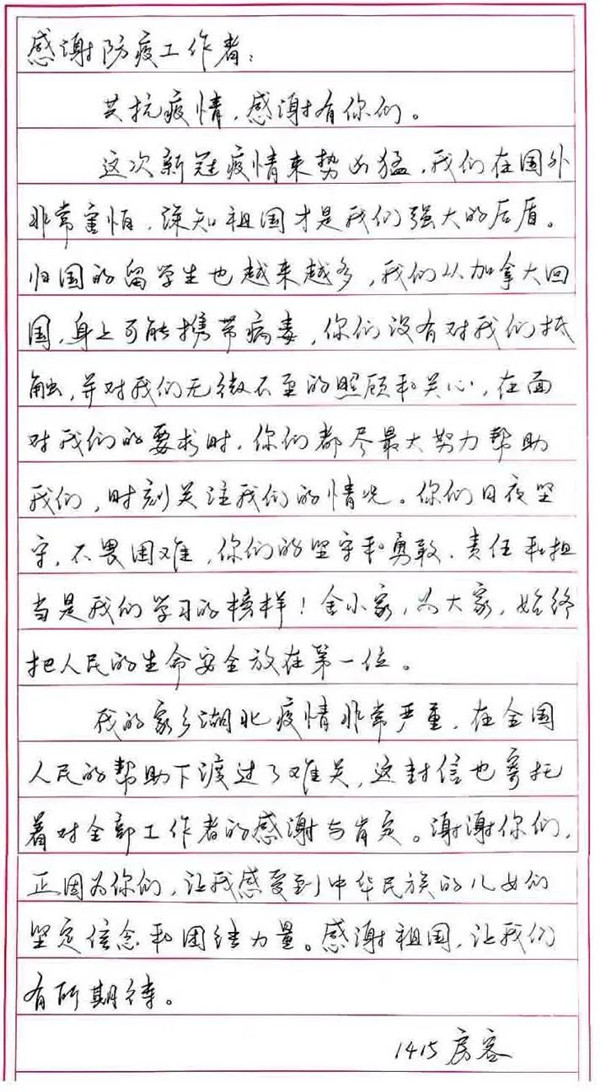 感谢防疫工作者：
共抗疫情，感谢有你们。
这次新冠疫情来势凶猛，我们在国外
非常害怕，深知祖国才是我们强大的后盾。
归国的留学生也越来越多，我们从加拿大回
国，身上可能携带病毒，你们没有对我们抵
触，并对我们无微不至的照顾和关心，在面
对我们的要求时，你们都尽最大努力帮助
我们，时刻关注我们的情况。你们日夜坚
守，不畏困难，你们的坚守和勇敢、责任和担
当是我们学习的榜样！舍小家，为大家，始终
把人民的生命安全放在第一位。
我的家乡湖北疫情非常严重，在全国
人民的帮助下渡过了难关，这封信也寄托
着对全部工作者的感谢与肯定。谢谢你们，
正因为你们，让我感受到中华民族的儿女们
坚定信念和团结力量。感谢祖国，让我们
有所期待。
1415房客